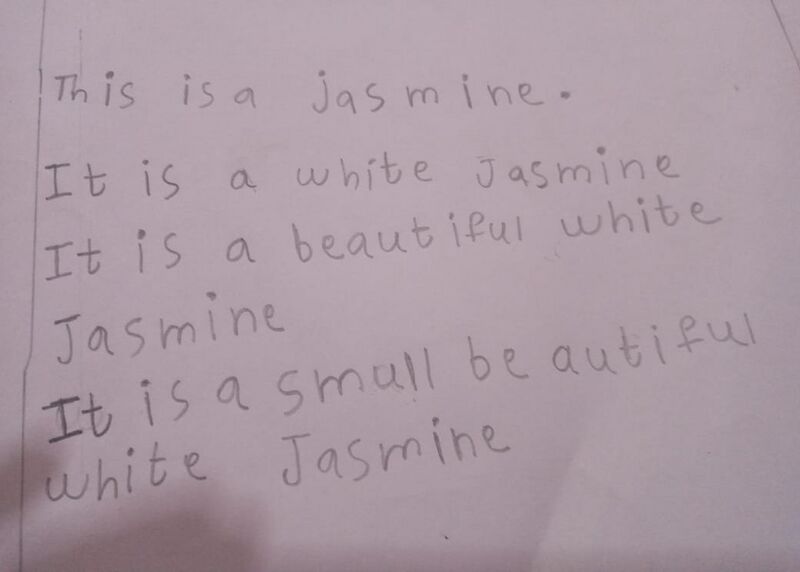 This is a jasmine.
It is a white Jasmine
It is a beautiful white
Jasmine
It is a small beautiful
white Jasmine